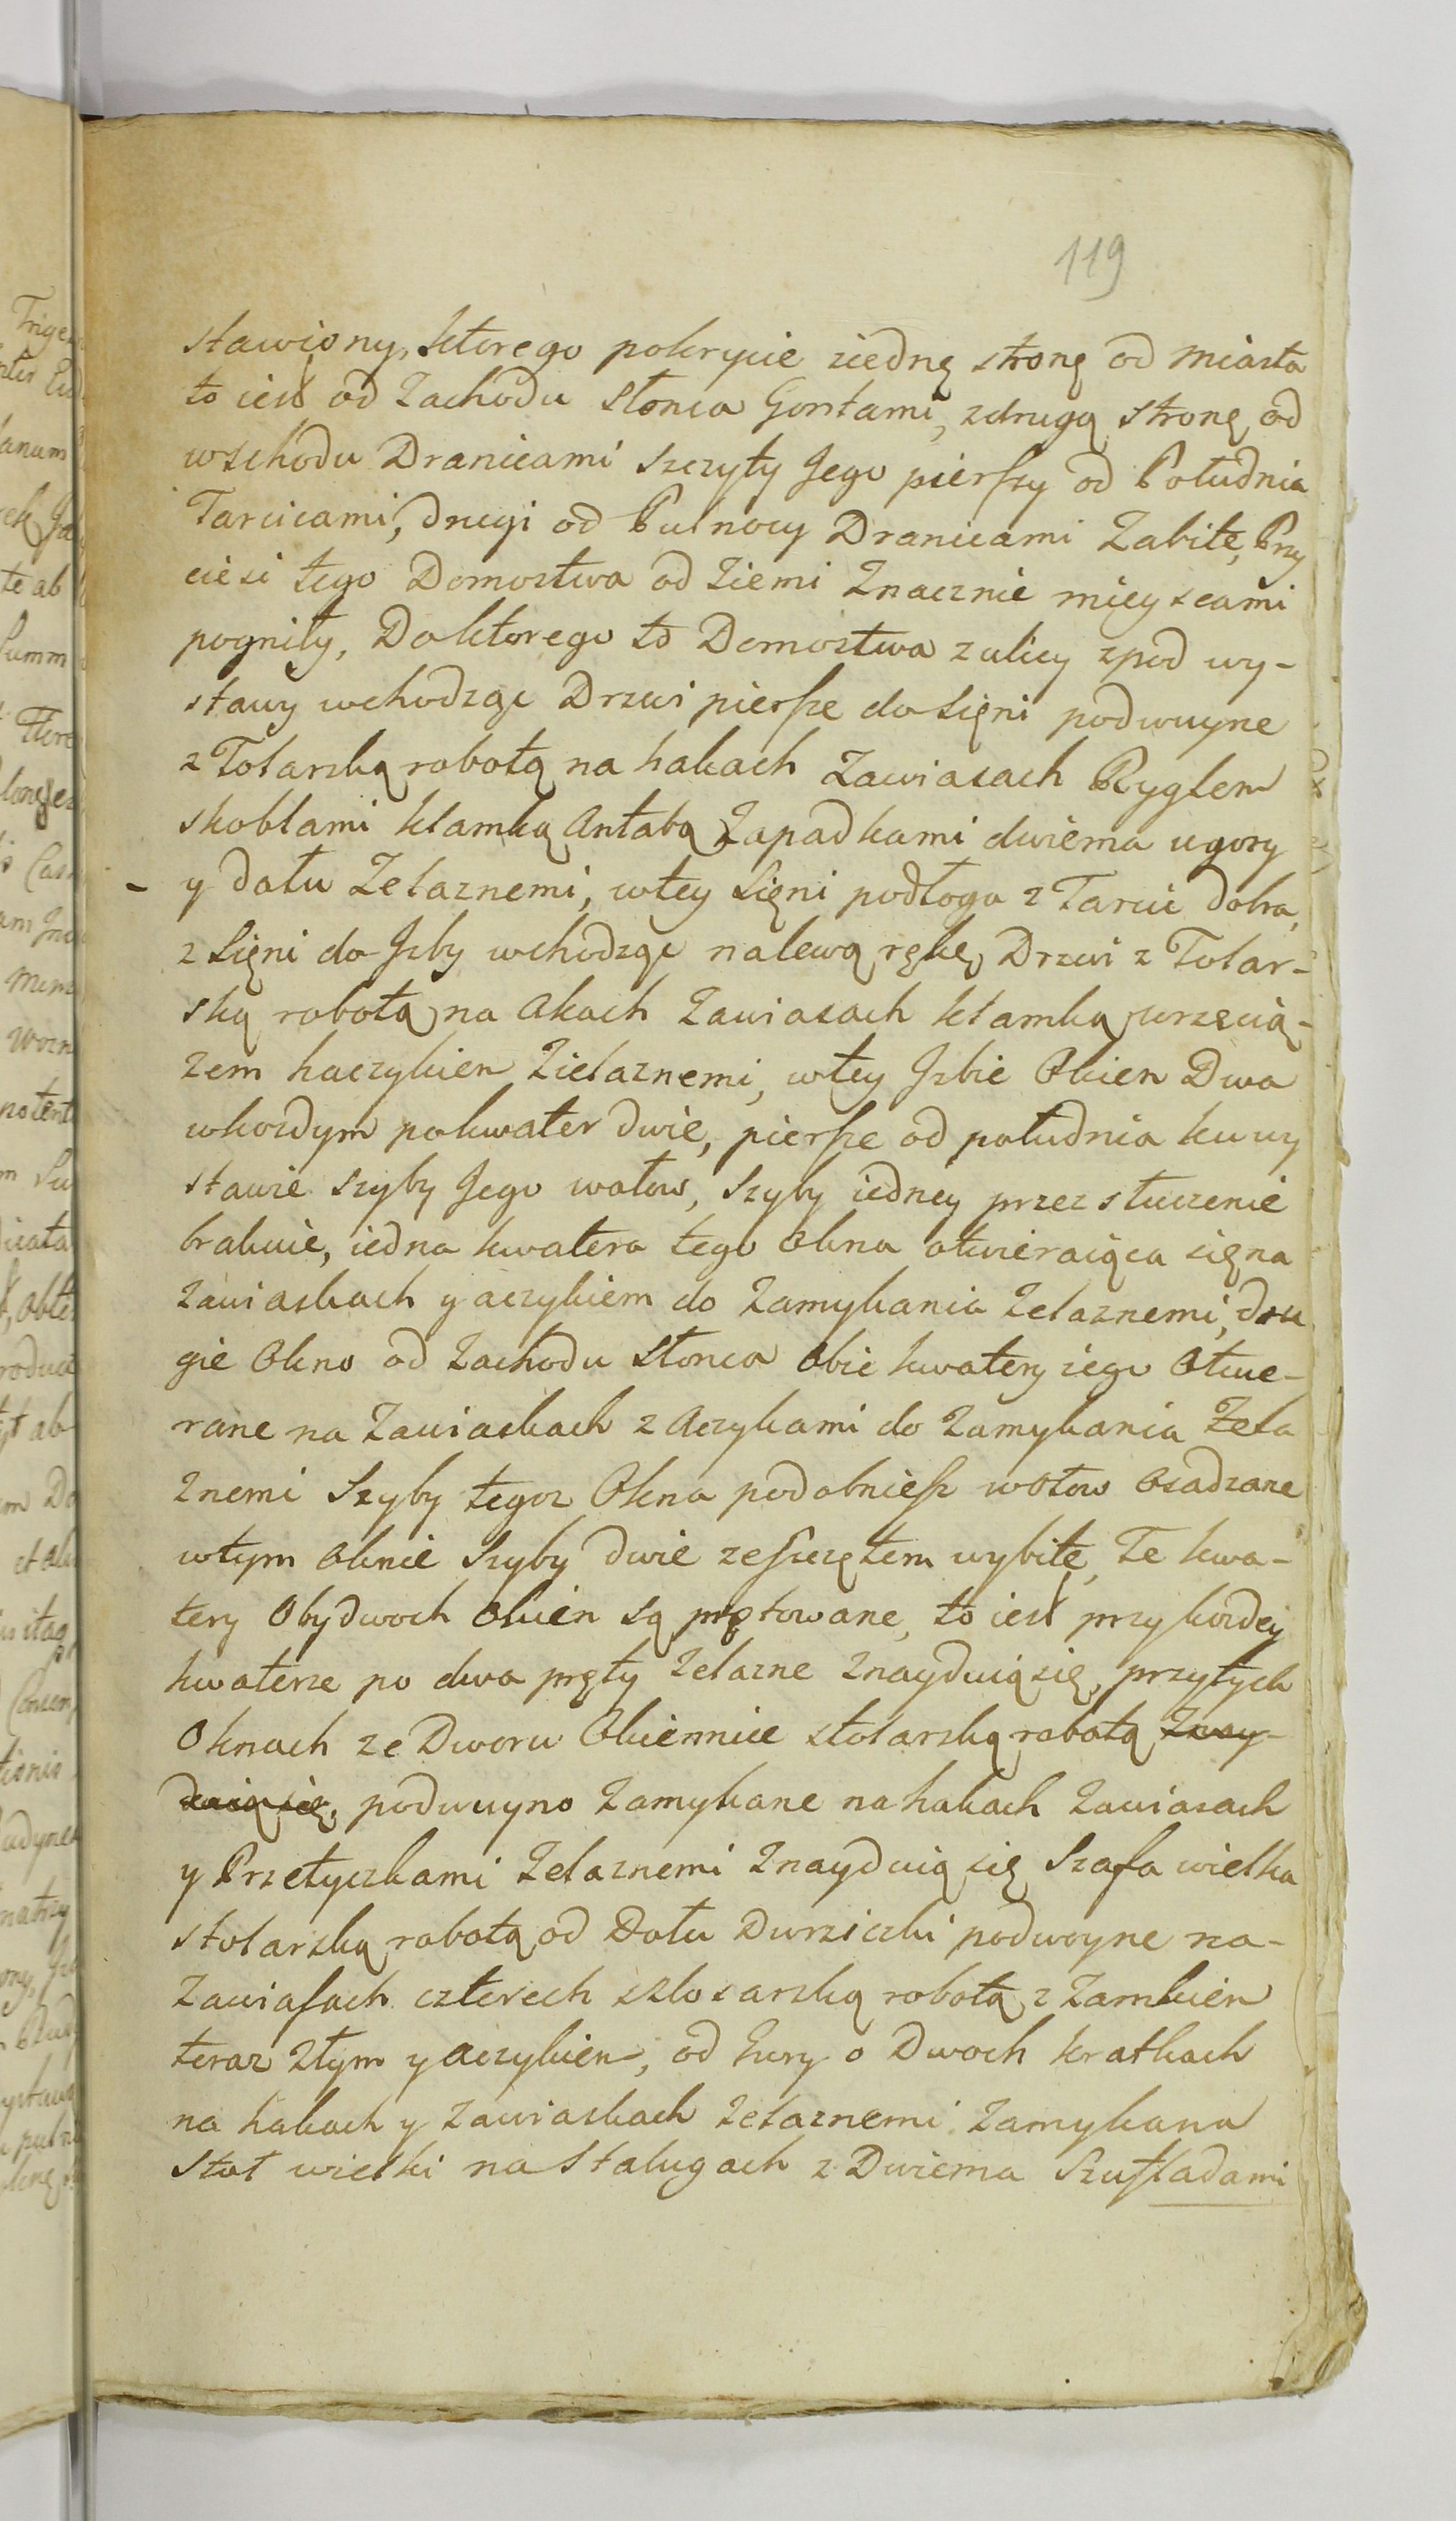 119
stawiony, ktorego pokrycie ziednę stronę od Miasta
to iest od Zachodu Słonca Gontami, zdrugą stronę od
wschodu Dranicami Szczyty Jego pierszy od Południa
Tarcicami, drugi od Pułnocy Dranicami Zabite, Przy
ciesi tego Domostwa od Ziemi Znacznie mieyscami
pogniły, Doktorego to Domostwa zulicy zpod wy-
stawy wchodząc Drzwi piersze do Sięni podwuyne
z Tolarską robotą na hakach Zawiasach Ryglem
skoblami klamką Antabą Zapadkami dwiema ugory
y dołu Zelaznemi, wtey Sięni podłoga z Tarcic dobra,
z Sięni do Jzby wchodząc nalewą rękę Drzwi z Tolar-
ską robotą na Akach Zawiasach klamką wrzecią-
zem haczykien Zielaznemi, wtey Jzbie Okien Dwa
wkozdym pokwater dwie, piersze od południa kuwy
stawie szyby Jego wołow, Szyby iedney przez stuczenie
brakuie, iedna kwatera tego Okna otwieraiąca sięna
Zawiaskach y aczykiem do Zamykania Zelaznemi, dru
gie Okno od Zachodu Słonca Obie kwatery iego Otwe-
rane na Zawiaskach z Aczykami do Zamykania Zela
Znemi Szyby tegoz Okna podobniesz wołow Osadzane
wtym Oknie Szyby dwie zeszczętem wybite, Te kwa-
tery Obydwoch Okien są prętowane, to iest przy kozdey
kwaterze po dwa pręty Zelazne Znayduią się, przytych
Oknach ze Dworu Okiennice stolarską robotą Znay-
duią się, podwuyno Zamykane na hakach Zawiasach
y Przetyczkami Zelaznemi Znayduią się Szafa wielka
stolarską robotą od Dołu Durziczki podwoyne na-
Zawiasach czterech szlosarską robotą z Zamkien
teraz Złym y aczykien, od Gury o Dwoch kratkach
na hakach y Zawiaskach Zelaznemi Zamykana
Stoł wielki na Stalugach z Dwiema Szufladami